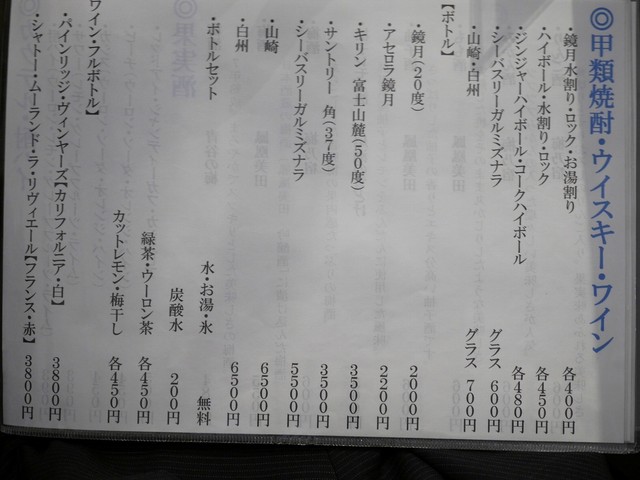 ◎甲類焼酎・ウイスキー・ワイン
・鏡月水割り・ロック・お湯割り 各400円
・ハイボール・水割り・ロック 各450円
・ジンジャーハイボール・コークハイボール 各480円
・シーバスリーガルミズナラ グラス 600円
・山崎・白州 グラス 700円
【ボトル】
・鏡月(20度) 2000円
・アセロラ鏡月 2200円
・キリン 富士山麓(50度) 3500円
・サントリー 角(37度) 3500円
・シーバスリーガルミズナラ 5500円
・山崎 6500円
・白州 6500円
・ボトルセット 水・お湯・氷 無料
炭酸水 200円
緑茶・ウーロン茶 各450円
カットレモン・梅干し 各450円
ワイン・フルボトル】
・パインリッジ・ヴィンヤーズ【カリフォルニア・白】 3800円
・シャトー・ムーランド・ラ・リヴィエール【フランス・赤】 3800円